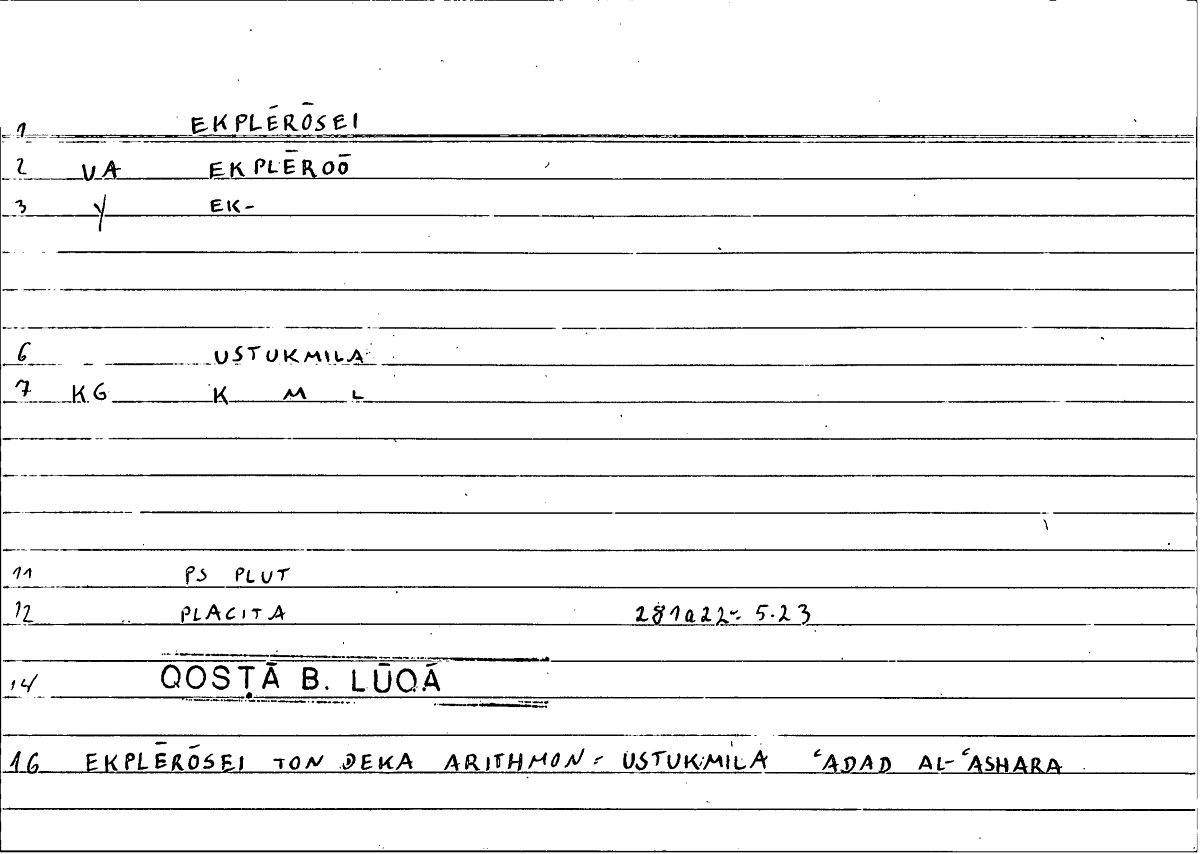 1 EKPLĒRŌSEI
2 VA EKPLĒROŌ
3 Y EK-
6 USTUKMILA
7 KG K M L
11 PS PLUT
12 PLACITA 281a22= 5.23
14 QOSṬĀ B. LŪQĀ
16 EKPLĒRŌSEI TON DEKA ARITHMON = USTUKMILA ʿADAD AL-ʿASHARA